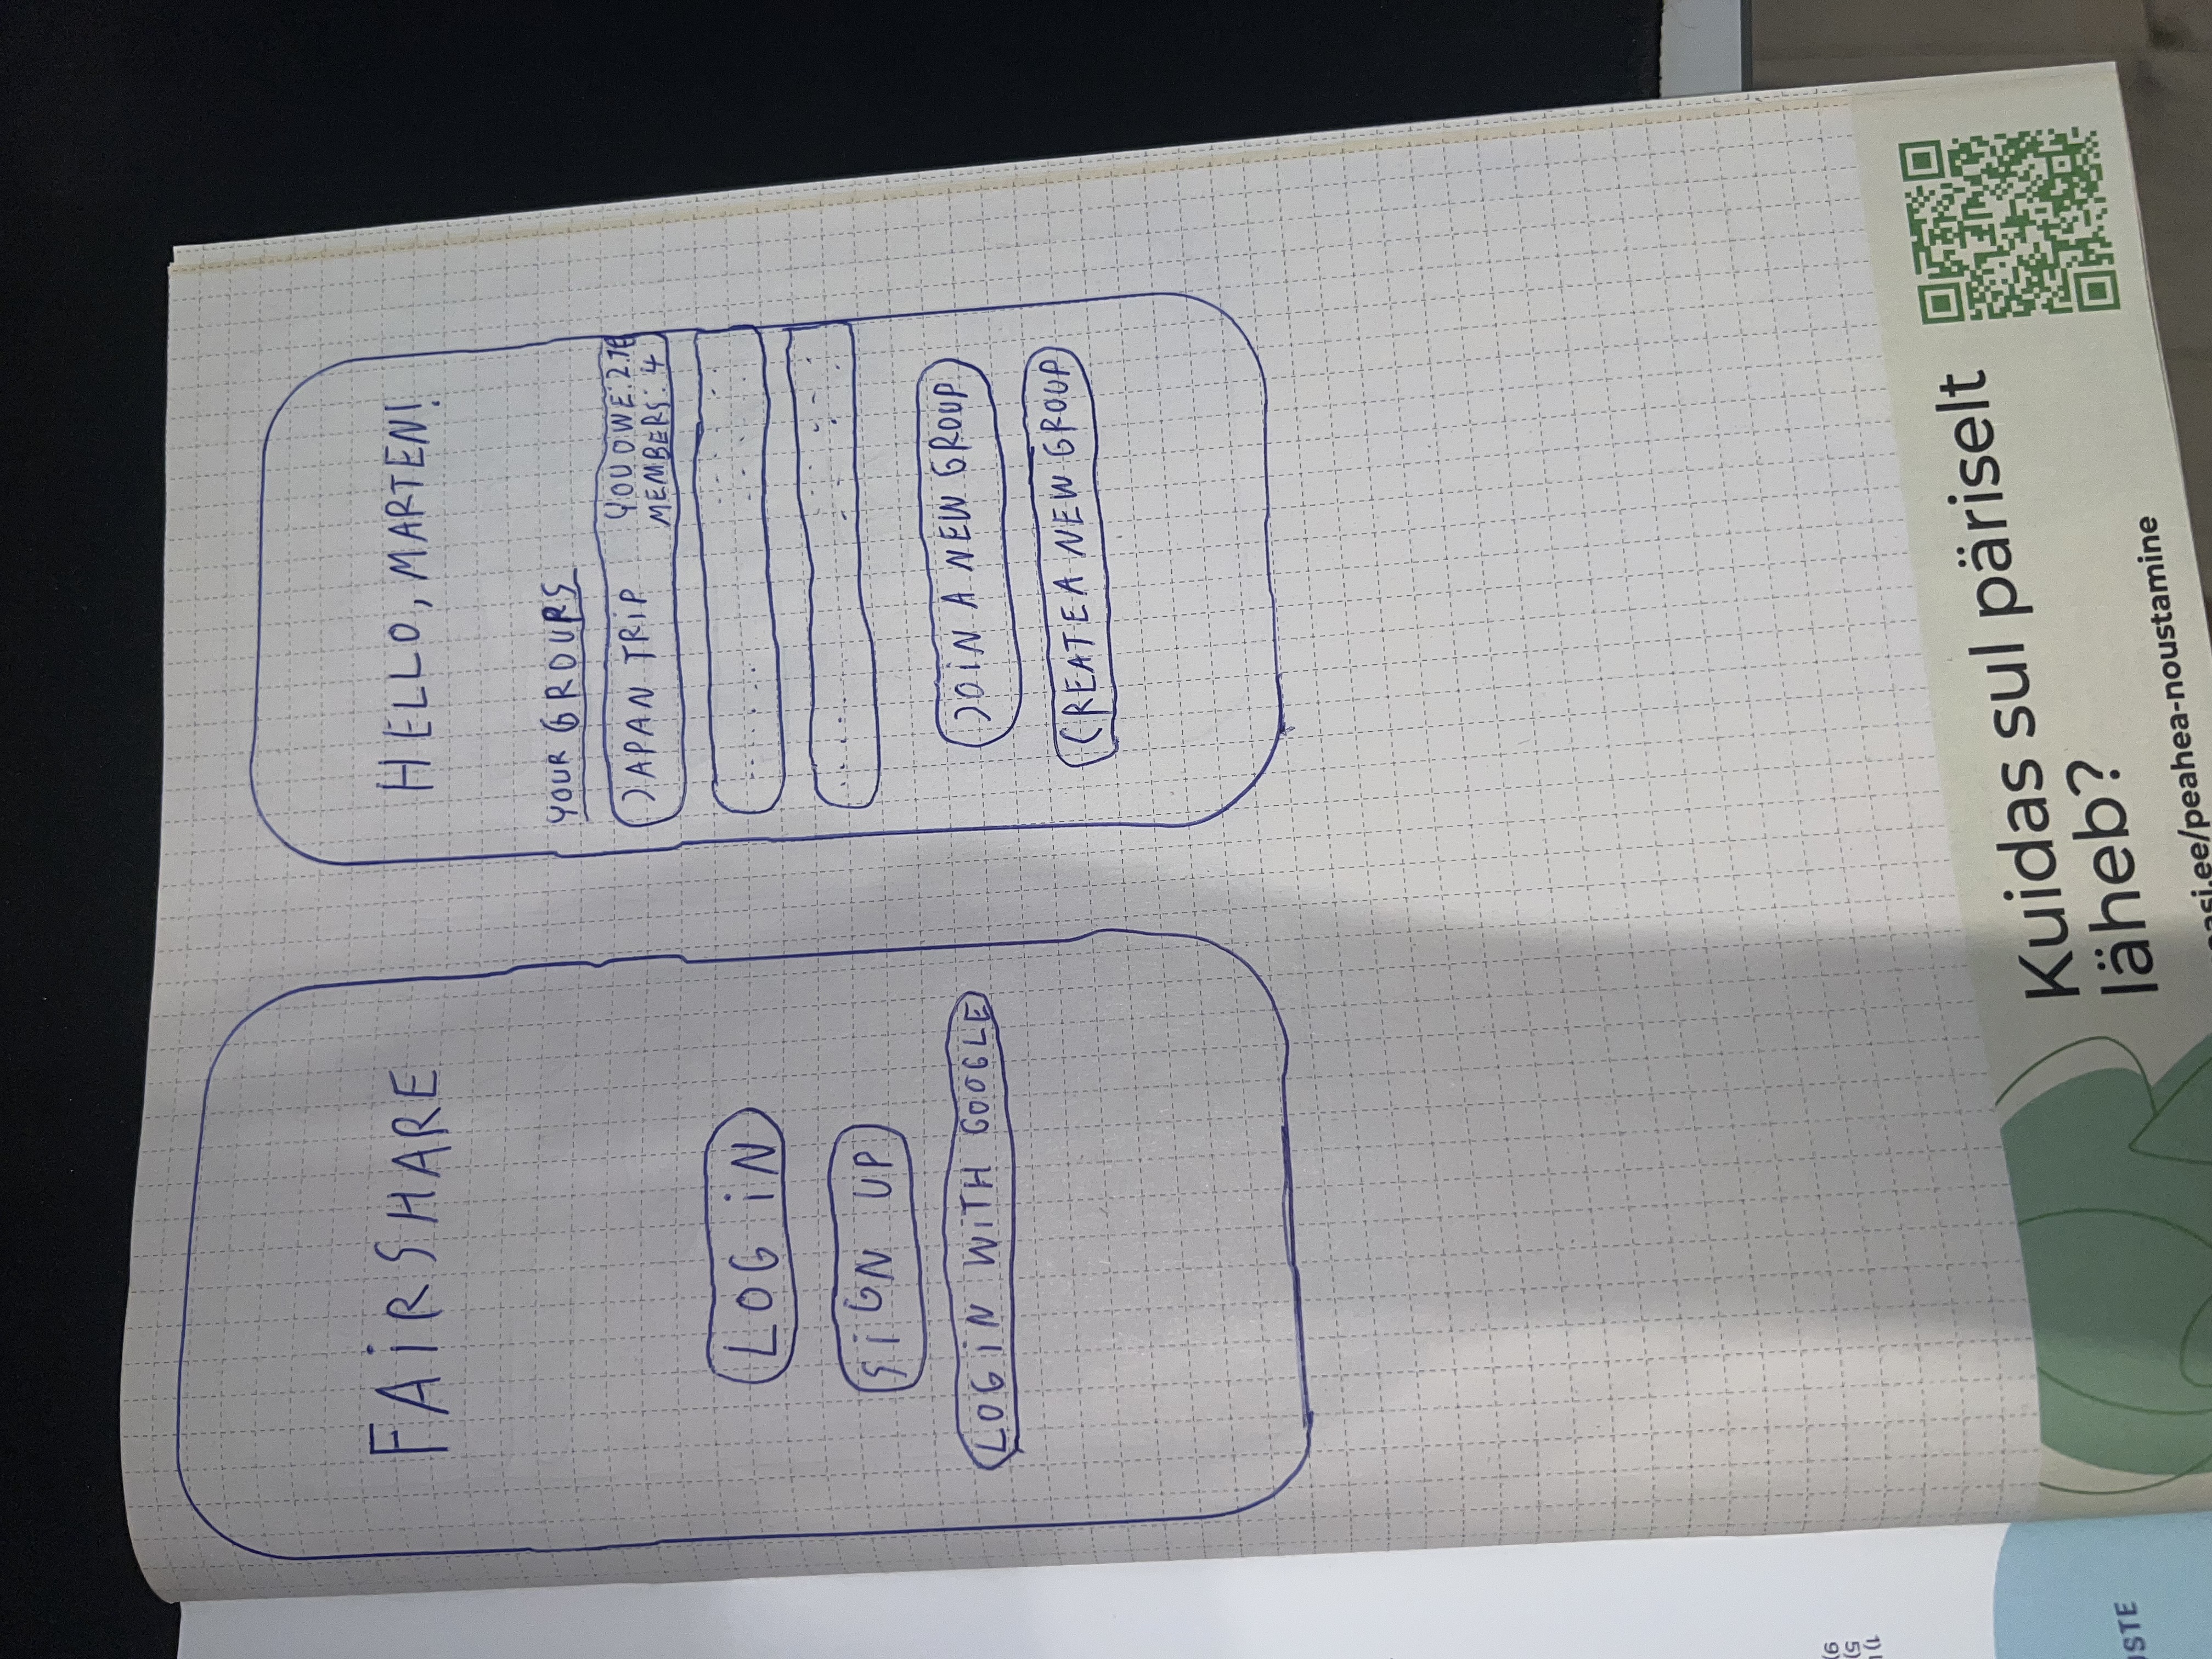 FAIRSHARE
LOG IN
SIGN UP
LOG IN WITH GOOGLE
HELLO, MARTEN!
YOUR GROUPS
JAPAN TRIP
YOU OWE: 2.7€
MEMBERS: 4
JOIN A NEW GROUP
CREATE A NEW GROUP
Kuidas sul päriselt
läheb?
peasi.ee/peahea-noustamine